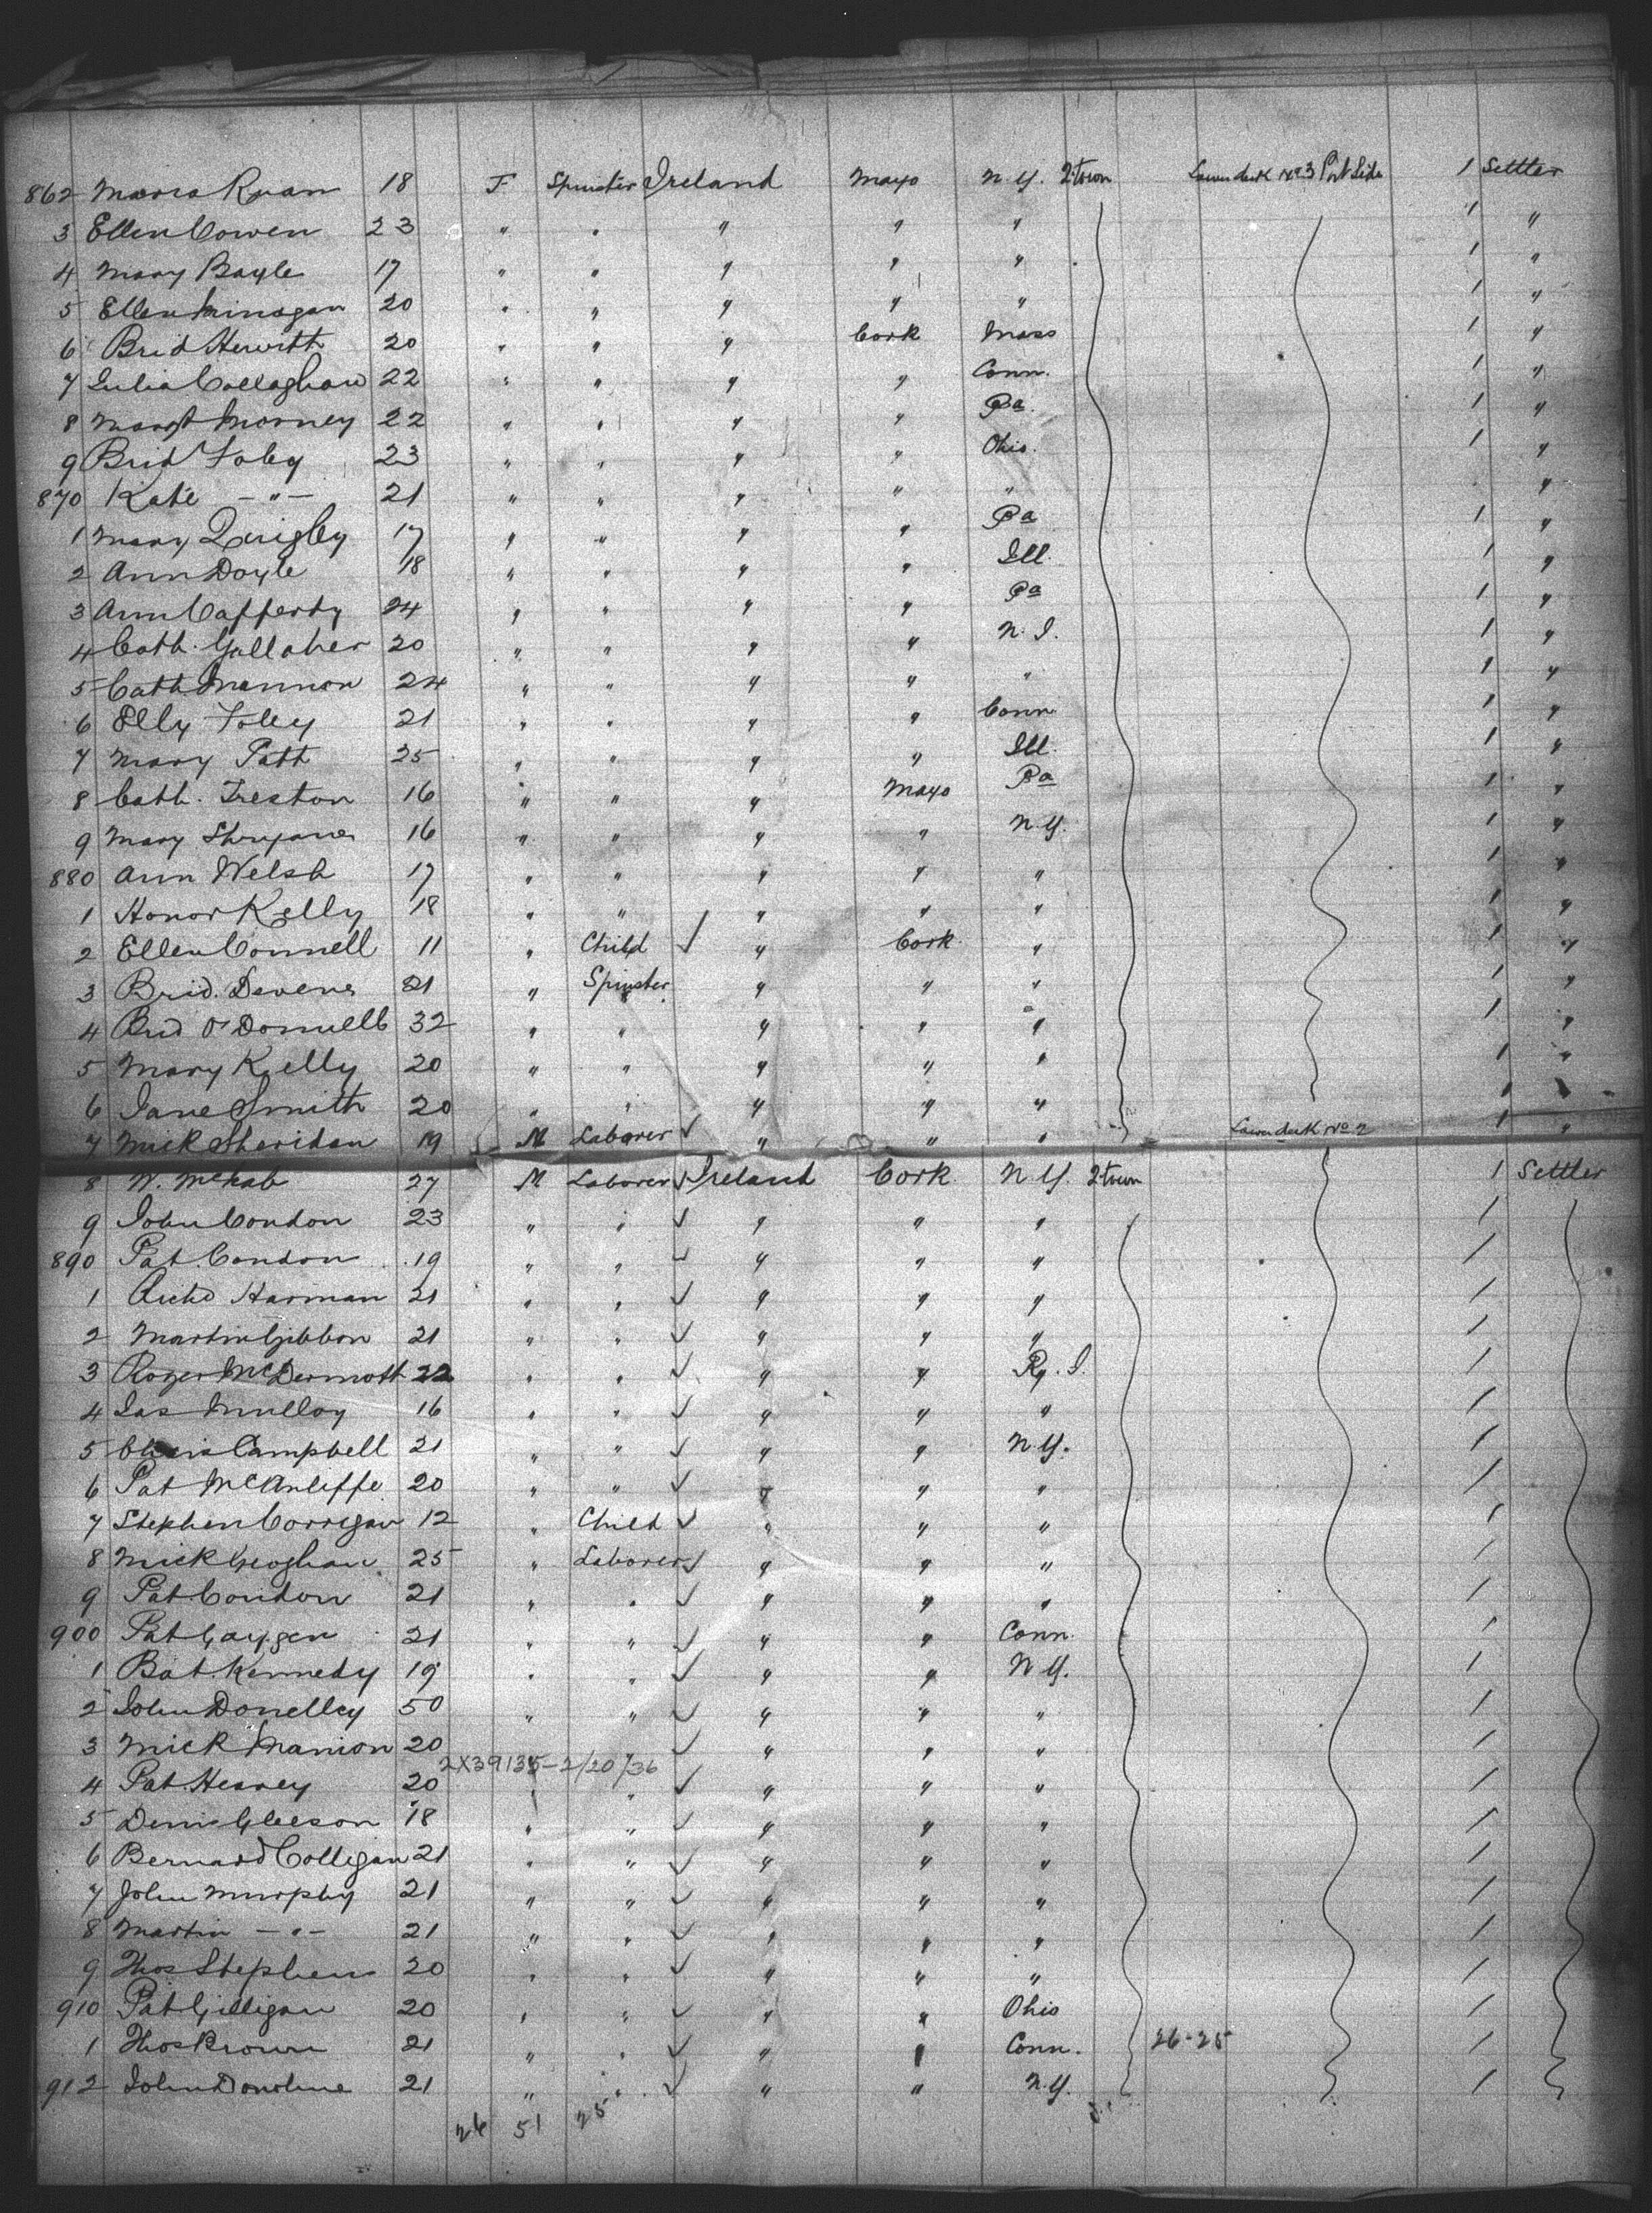 862 Maria Ruan 18 F Spinster Ireland Mayo N.Y. 2 town Lower deck No 3 Port Side 1 Settler
3 Ellen Cowen 23 " " " " " 1 "
4 Mary Bayle 17 " " " " " 1 "
5 Ellen Finegan 20 " " " " " 1 "
6 Brid Hewitt 20 " " " Cork Mass 1 "
7 Julia Callaghan 22 " " " " Conn. 1 "
8 Margt Morney 22 " " " " Pa. 1 "
9 Brid Foley 23 " " " " Ohio. 1 "
870 Kate — " — 21 " " " " " "
1 Mary Quigley 17 " " " " Pa 1 "
2 Ann Doyle 18 " " " " Ill 1 "
3 Ann Cafferty 24 " " " " Pa 1 "
4 Cath. Gallaher 20 " " " " N.J. 1 "
5 Cath Mannion 24 " " " " " 1 "
6 Elly Foley 21 " " " " Conn 1 "
7 Mary Patt 25 " " " " Ill. 1 "
8 Cath. Freston 16 " " " Mayo Pa 1 "
9 Mary 16 " " " " N.Y. 1 "
880 Ann Welsh 17 " " " " " 1 "
1 Honor Kelly 18 " " " " " 1 "
2 Ellen Connell 11 " Child ✓ " Cork " 1 "
3 Brid. Devene 21 " Spinster " " " 1 "
4 Brid O'Donnell 32 " " " " " 1 "
5 Mary Kelly 20 " " " " " 1 "
6 Jane Smith 20 " " " " " 1 "
7 Mick Sheridan 19 M Laborer ✓ " " " Lower deck No 2 1 "
8 W. McNab 27 M Laborer ✓ Ireland Cork N.Y. 2 town 1 Settler
9 John Condon 23 " " ✓ " " " 1
890 Pat. Condon 19 " " ✓ " " " 1
1 Richd Harman 21 " " ✓ " " " 1
2 Martin Gibbon 21 " " ✓ " " " 1
3 Roger McDermott 22 " " ✓ " " R. I. 1
4 Jas Mulloy 16 " " ✓ " " " 1
5 Chris Campbell 21 " " ✓ " " N.Y. 1
6 Pat McAuliffe 20 " " ✓ " " " 1
7 Stephen Corrigan 12 " Child ✓ " " " 1
8 Mick Geoghan 25 " Laborer ✓ " " " 1
9 Pat Condon 21 " " ✓ " " " 1
900 Pat 21 " " ✓ " " Conn. 1
1 Bat. Kennedy 19 " " ✓ " " N.Y. 1
2 John Donelley 50 " " ✓ " " " 1
3 Mick Manion 20 ✓ " " " 1
2X39135-2/20/36
4 Pat. Heaney 20 " " ✓ " " " 1
5 Denis Gleeson 18 " " ✓ " " " 1
6 Bernard Colligan 21 " " ✓ " " " 1
7 John Murphy 21 " " ✓ " " " 1
8 Martin — " — 21 " " ✓ " " " 1
9 Thos Stephens 20 " " ✓ " " " 1
910 Pat Gilligan 20 " " ✓ " " Ohio 1
1 Thos Brown 21 " " ✓ " " Conn. 26-25 1
912 John Donohue 21 " " ✓ " " N.Y. 1
26 51 25